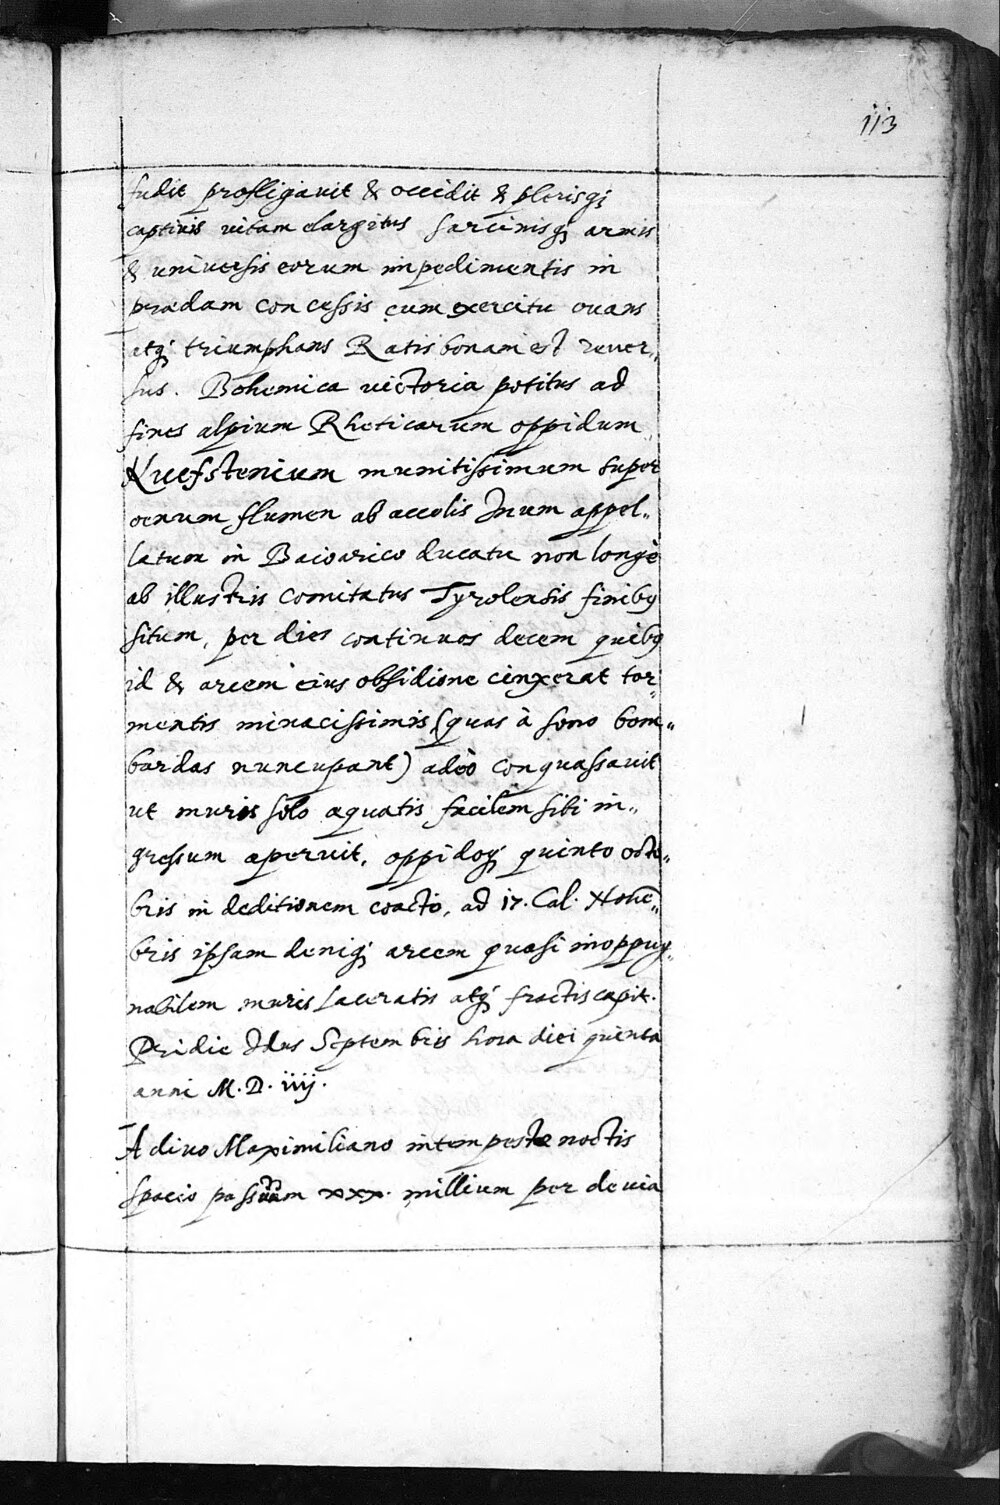 113
fudit profligauit & occidit & plerisq;
captiuis uitam elargitus sarcinisq; armis
& uniuersis eorum impedimentis in
prædam concessis cum exercitu ouans
atq; triumphans Ratisbonam est reuer„
sus. Bohemica uictoria potitus ad
fines alpium Rheticarum oppidum
Kuefstenium munitissimum super
oenum flumen ab accolis Inum appel„
latum in Baioarico ducatu non longè
ab illustris comitatus Tyrolensis finibq
situm, per dies continuos decem quibq
id & arcem eius obsidione cinxerat tor„
mentis minacissimis (quas à sono bom„
bardas nuncupant) adeò conquassauit
ut muris solo æquatis facilem sibi in„
gressum aperuit, oppidoq; quinto octo„
bris in deditionem coacto, ad 17. Cal. Nouē„
bris ipsam deniq; arcem quasi inoppug„
nabilem muris laceratis atq; fractis capit.
Pridie Idus Septembris hora diei quinta
anni M. D. iiij.
A diuo Maximiliano intempestæ noctis
spacio passuum xxx. millium per deuia